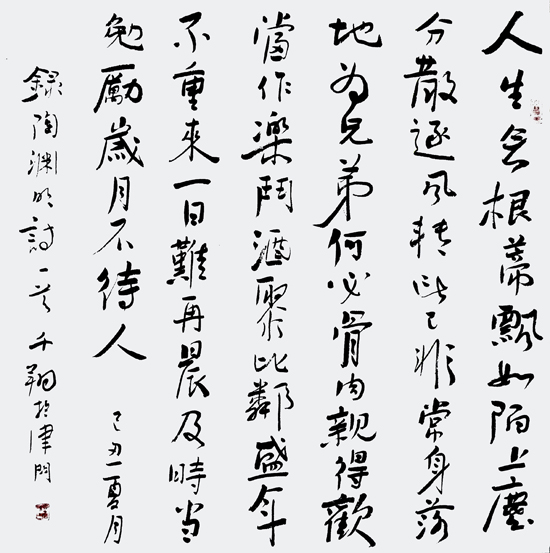 人生無根蒂飄如陌上塵
分散逐風轉此已非常身落
地為兄弟何必骨肉親得歡
當作樂鬥酒聚比鄰盛年
不重來一日難再晨及時当
勉勵歲月不待人 己丑夏月
録陶淵明詩一首 千翔於津門